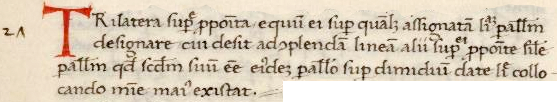 TRilatera supͬ ppoñta equũ ei sup qualʒ assignatã lĩʒ pallm̃
designare cui desit adcplendã lineã aliũ supͬ ppoñte silē
pallm̃ qd̃ scdm̃ suũ eē eidez pallo sup dimidiũ date lĩ collo
cando mñe maiꝰ existat.